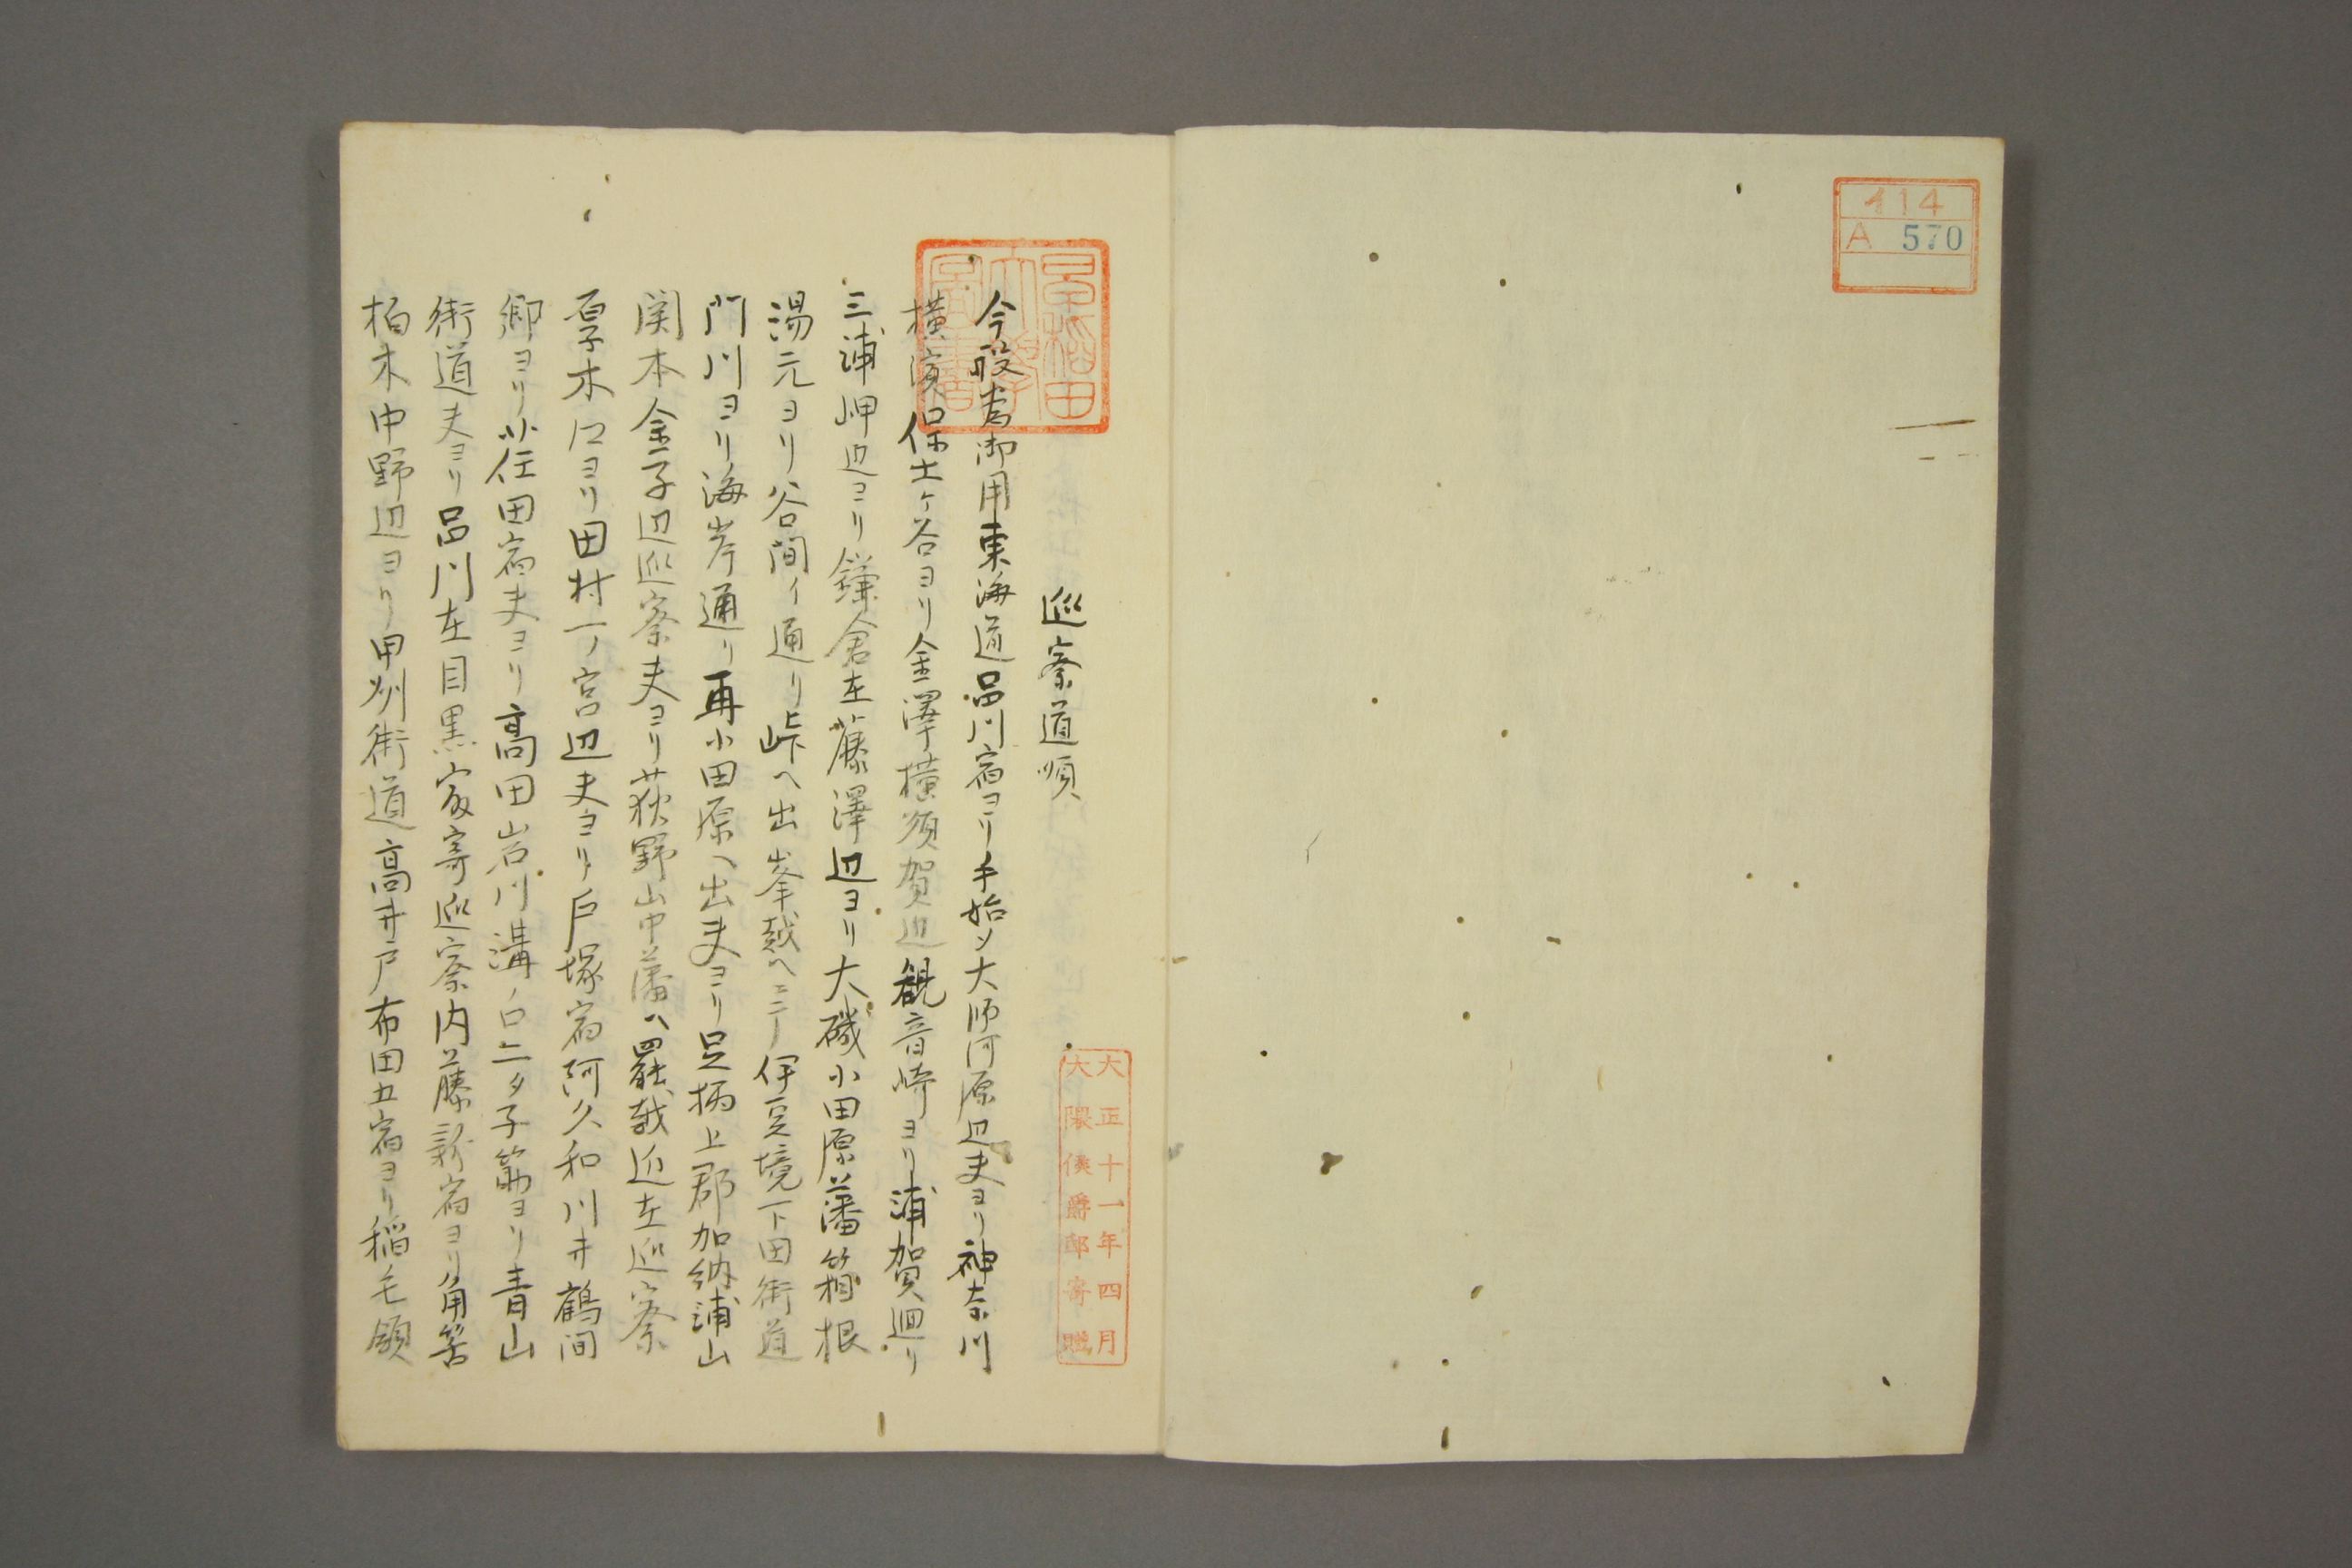 イ14
A 570
早稲田大學圖書
大正十一年四月
大隈侯爵邸寄贈
巡察道順
今般為御用東海道品川宿ヨリ手始メ大师河原辺夫ヨリ神奈川
横濱保土ヶ谷ヨリ金澤横須賀辺観音崎ヨリ浦賀廻リ
三浦岬辺ヨリ鎌倉在藤澤辺ヨリ大磯小田原藩箱根
湯元ヨリ谷間イ通リ峠ヘ出峯越ヘニ伊豆境下田街道
門川ヨリ海岸通リ再小田原ヘ出夫ヨリ足柄上郡加納浦山
関本金子辺巡察夫ヨリ荻野山中藩ハ罷越近在巡察
厚木江ヨリ田村一ノ宮辺夫ヨリ戸塚宿阿久和川井鶴間
郷ヨリ小荏田宿夫ヨリ高田岩川溝ノ口二タ子筋ヨリ青山
街道夫ヨリ品川在目黒家寄巡察内藤新宿ヨリ角筈
柏木中野辺ヨリ甲州街道高井戸布田五宿ヨリ稲毛領